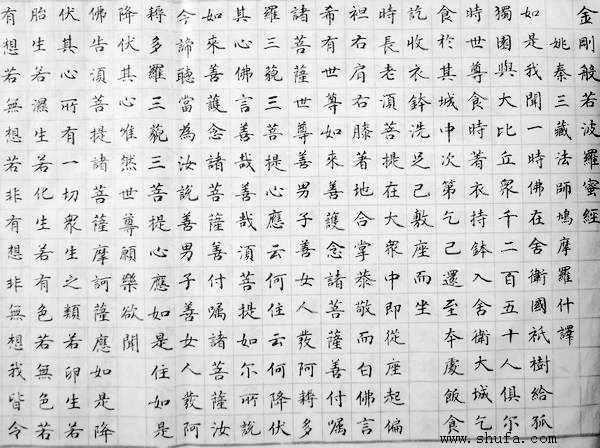 金剛般若波羅蜜經
姚秦三藏法師鳩摩羅什譯
如是我聞一時佛在舍衛國祇樹給孤
獨園與大比丘眾千二百五十人俱尔
時世尊食時著衣持鉢入舍衛大城乞
食於其城中次第乞已還至本處飯食
訖收衣鉢洗足已敷座而坐
時長老須菩提在大眾中即從座起偏
袒右肩右膝著地合掌恭敬而白佛言
希有世尊如來善護念諸菩薩善付囑
諸菩薩世尊善男子善女人發阿耨多
羅三藐三菩提心應云何住云何降伏
其心佛言善哉善哉須菩提如尔所說
如來善護念諸菩薩善付囑諸菩薩汝
今諦聽當為汝說善男子善女人發阿
耨多羅三藐三菩提心應如是住如是
降伏其心唯然世尊願樂欲聞
佛告須菩提諸菩薩摩訶薩應如是降
伏其心所有一切眾生之類若卵生若
胎生若濕生若化生若有色若無色若
有想若無想若非有想非無想我皆令
www.shufa.com